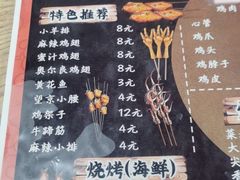 特色推荐
小羊排 8元
麻辣鸡翅 8元
蜜汁鸡翅 8元
奥尔良鸡翅 8元
黄花鱼 3元
望京小腰 3元
鸡架子 12元
牛蹄筋 4元
麻辣小排 4元
烧烤(海鲜)
鸡肉
心管
鸡爪
鸡头
鸡脖子
鸡皮
菜
大尖